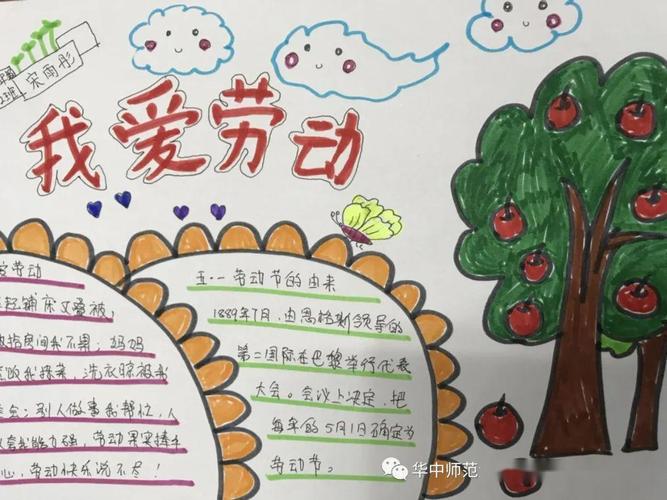 宋雨彤
我爱劳动
爱劳动
铺床又叠被，
房间我不累；妈妈
饭我择菜，洗衣晾被我
会；别人做事我帮忙，人
夸我能力强，劳动果实捧手
心，劳动快乐说不尽！
五·一劳动节的由来
1889年7月，由恩格斯领导的
第二国际在巴黎举行代表
大会。会议上决定，把
每年的5月1日确定为
劳动节。
华中师范